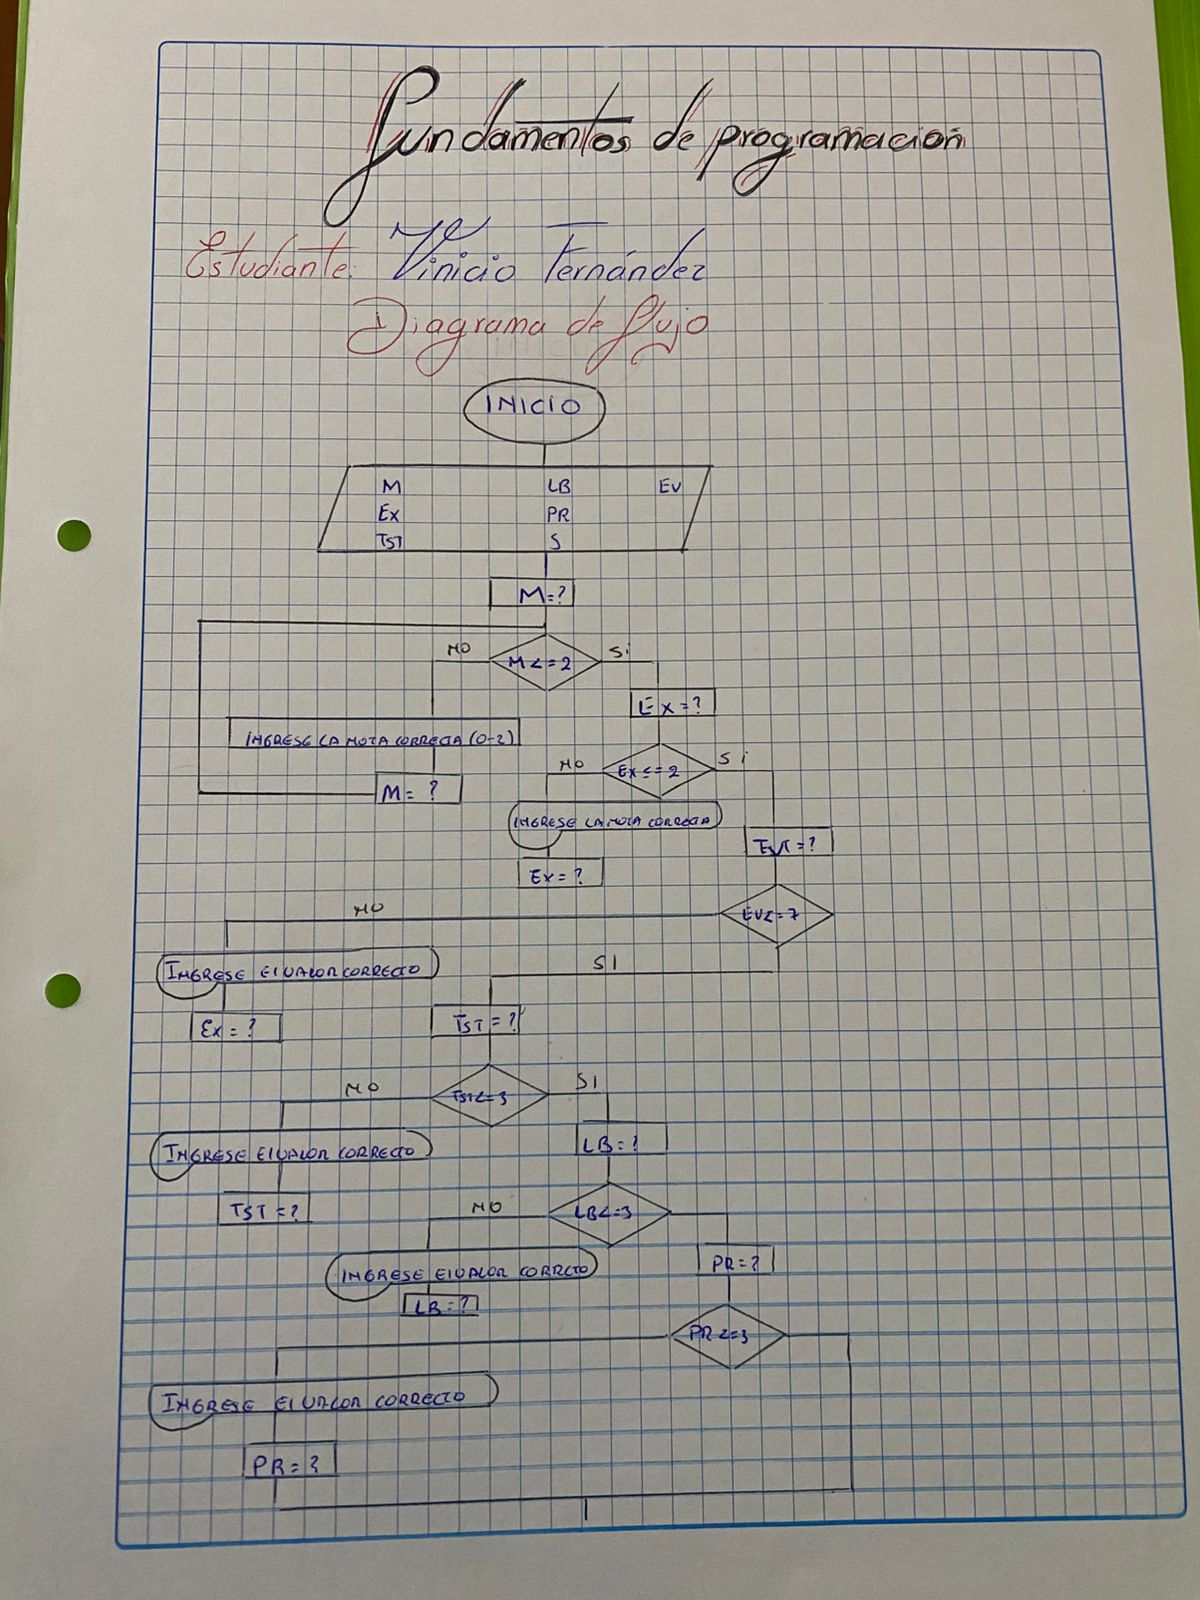 Fundamentos de programación
Estudiante: Vinicio Fernández
Diagrama de flujo
INICIO
M LB EV
Ex PR
TST S
M=?
NO M<=2 Si
Ex=?
INGRESE LA NOTA CORRECTA (0-2)
NO Ex<=2 Si
M= ?
INGRESE LA NOTA CORRECTA
Ex=?
NO EV<=7
INGRESE El VALOR CORRECTO SI
Ex=? TST=?
NO TST<=3 SI
INGRESE El VALOR CORRECTO LB=?
TST=? NO LB<=3
INGRESE El VALOR CORRCTO PR=?
LB=?
PR<=3
INGRESE El VALOR CORRECTO
PR=?